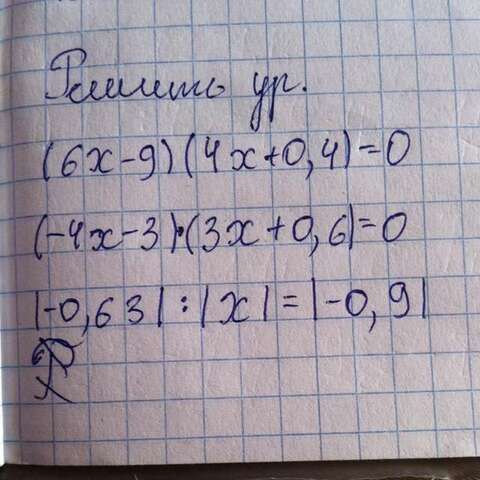 Решить ур.
(6x-9)(4x+0,4)=0
(-4x-3)·(3x+0,6)=0
|-0,63|:|x|=|-0,9|